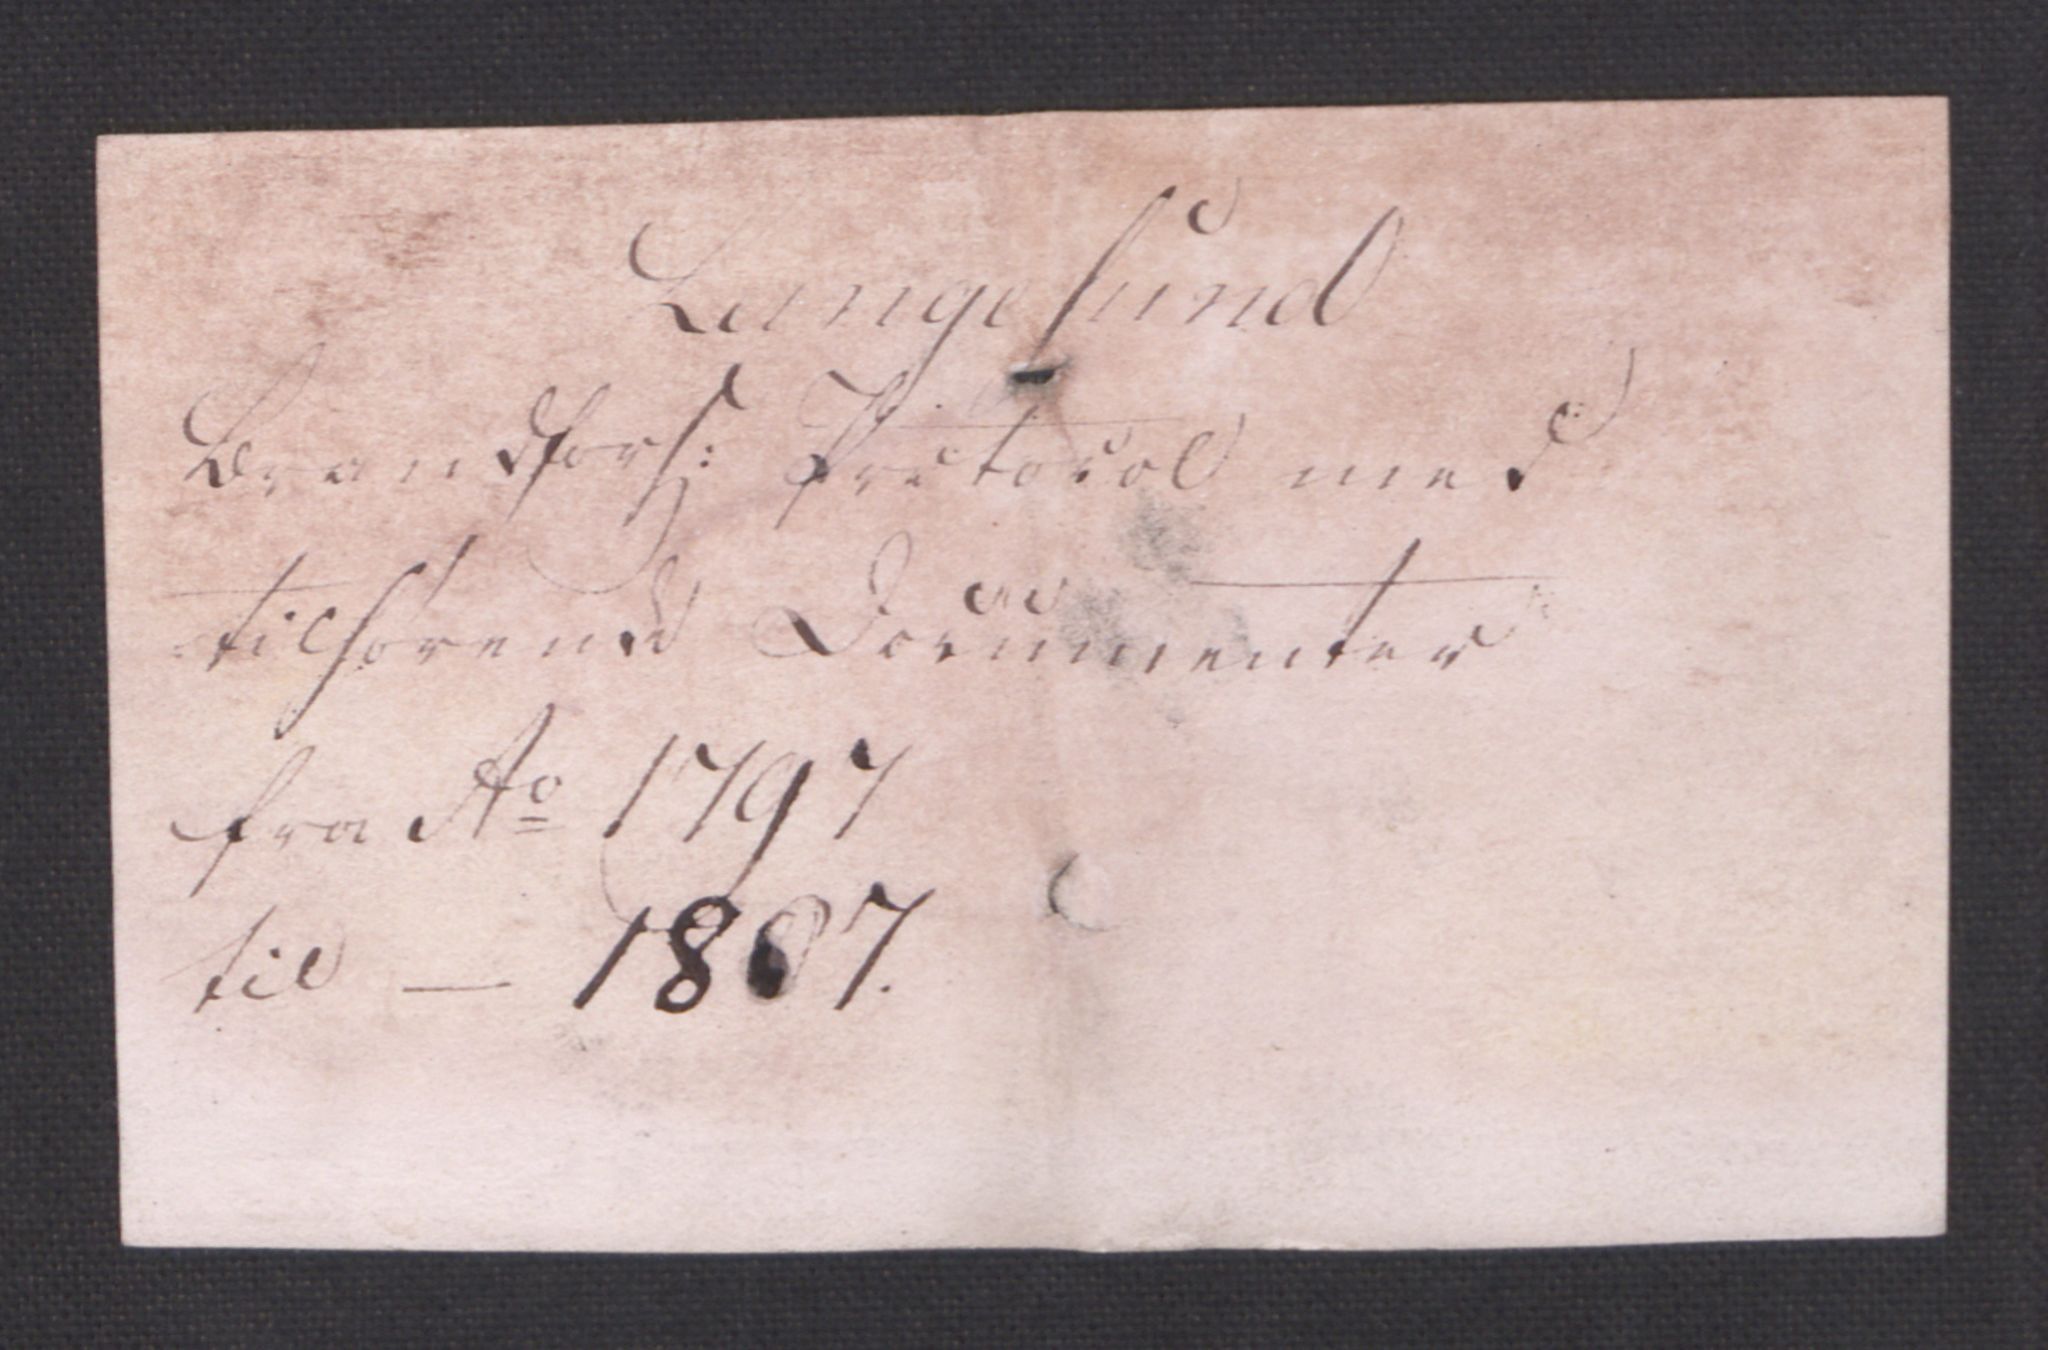 Langesund
Brandfors: Protocol med
tilhørend Documenter
fra Ao 1797
til — 1807.